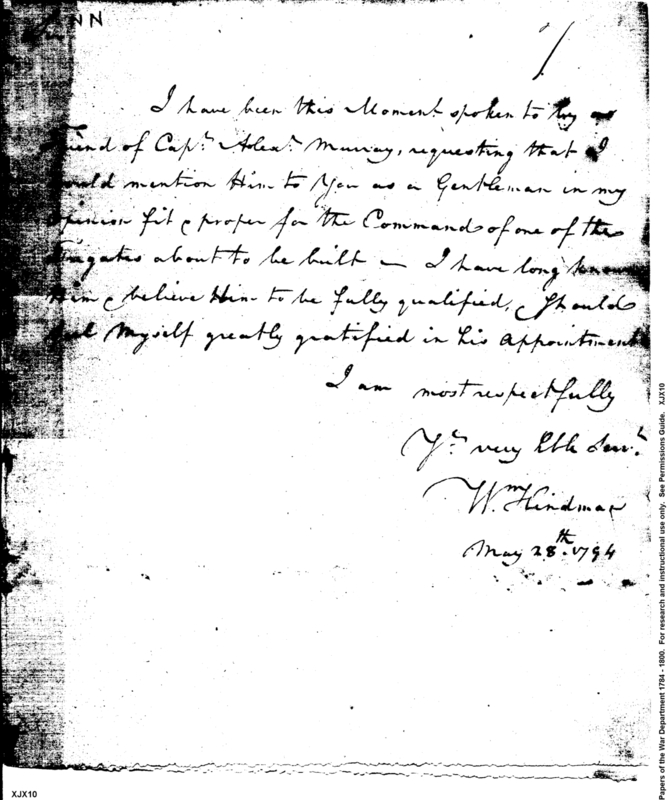 NN
I have been this Moment spoken to by a
Friend of Cap.ⁿ Alex.ʳ Murray, requesting that I
would mention Him to You as a Gentleman in my
opinion fit & proper for the Command of one of the
Frigates about to be built — I have long known
Him & believe Him to be fully qualified, & Should
feel Myself greatly gratified in his Appointment
I am most respectfully
Y.ʳ very Hble Serv.ᵗ
W.ᵐ Hindman
May 28.ᵗʰ 1794
XJX10
Papers of the War Department 1784 - 1800. For research and instructional use only. See Permissions Guide. XJX10